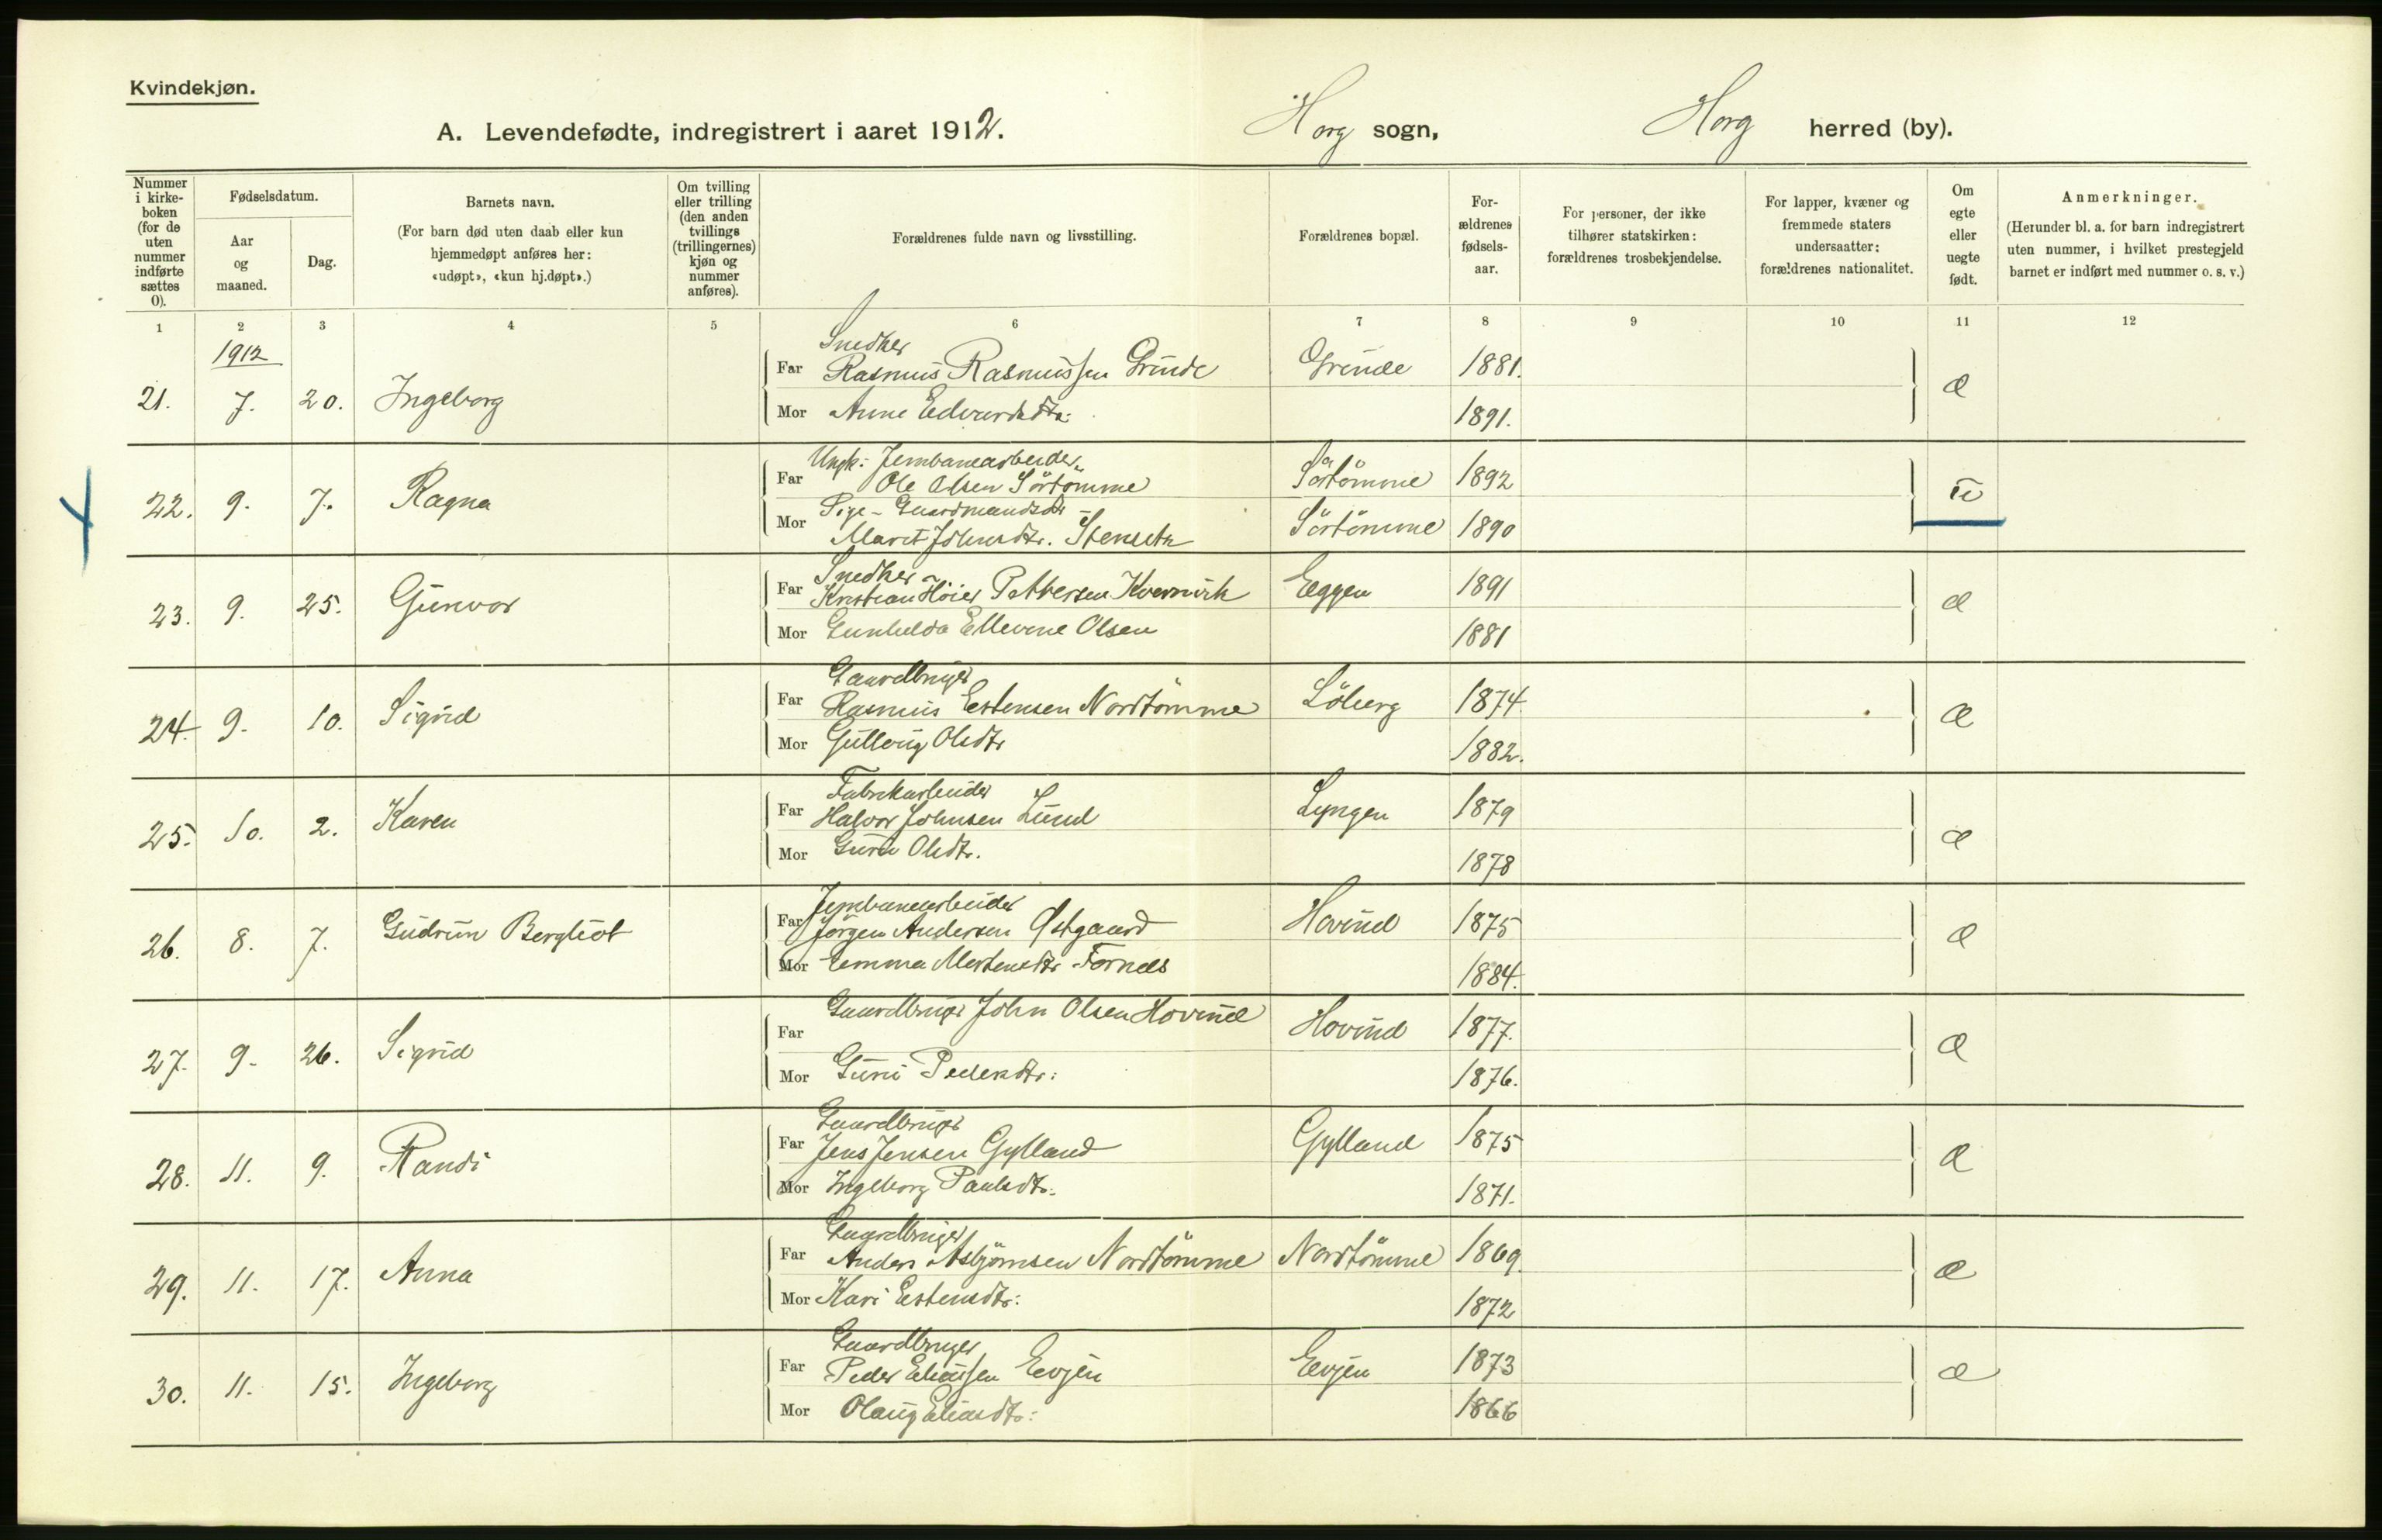 Kvindekjøn.
A. Levendefødte, indregistrert i aaret 1912. Horg sogn, Horg herred (by).
Nummer i kirke-boken (for de uten nummer indførte sættes 0).
Fødselsdatum.
Aar og maaned.
Dag.
Barnets navn.
(For barn død uten daab eller kun hjemmedøpt anføres her: «udøpt», «kun hj.døpt».)
Om tvilling eller trilling (den anden tvillings (trillingernes) kjøn og nummer anføres).
Forældrenes fulde navn og livsstilling.
Forældrenes bopæl.
For-ældrenes fødsels-aar.
For personer, der ikke tilhører statskirken: forældrenes trosbekjendelse.
For lapper, kvæner og fremmede staters undersaatter: forældrenes nationalitet.
Om egte eller uegte født.
Anmerkninger.
(Herunder bl. a. for barn indregistrert uten nummer, i hvilket prestegjeld barnet er indført med nummer o. s. v.)
1 2 3 4 5 6 7 8 9 10 11 12
1912
Snedker
21. 7. 20. Ingeborg Far Rasmus Rasmussen Grinde Grinde 1881. æ
Mor Anne Edvardsdtr. 1891.
Ungk: Jernbanearbeider
22. 9. 7. Ragna Far Ole Olsen Sörtömme Sörtömme 1892 u
Pige - Gaardmandsdtr
Mor Marit Johnsdtr. Stenseth Sörtömme 1890
Snedker
23. 9. 25. Gunvor Far Kristian Höier Pettersen Kvernvik Eggen 1891 æ
Mor Gunhilda Ellevine Olsen 1881
Gaardbruger
24. 9. 10. Sigrid Far Rasmus Estensen Nordtömme Löberg 1874. æ
Mor Gullaug Olsdtr 1882.
Fabrikarbeider
25. 10. 2. Karen Far Halvor Johnsen Lund Lyngen 1879 æ
Mor Guru Olsdtr. 1878
Jernbanearbeider
26. 8. 7. Gudrun Bergliot Far Jörgen Andersen Østgaard Hovind 1875 æ
Mor Emma Mortensdtr Fornes 1884.
27. 9. 26. Sigrid Far Gaardbruger John Olsen Hovind Hovind 1877. æ
Mor Guru Pedersdtr: 1876.
Gaardbruger
28. 11. 9. Randi Far Jens Jensen Gylland Gylland 1875 æ
Mor Ingeborg Paulsdtr. 1871.
Gaardbruger
29. 11. 17. Anna Far Anders Asbjörnsen Nordtömme Nordtömme 1869. æ
Mor Kari Estensdtr: 1872
Gaardbruger
30. 11. 15. Ingeborg Far Peder Eliassen Evjen Evjen 1873 æ
Mor Olaug Eliasdtr: 1866